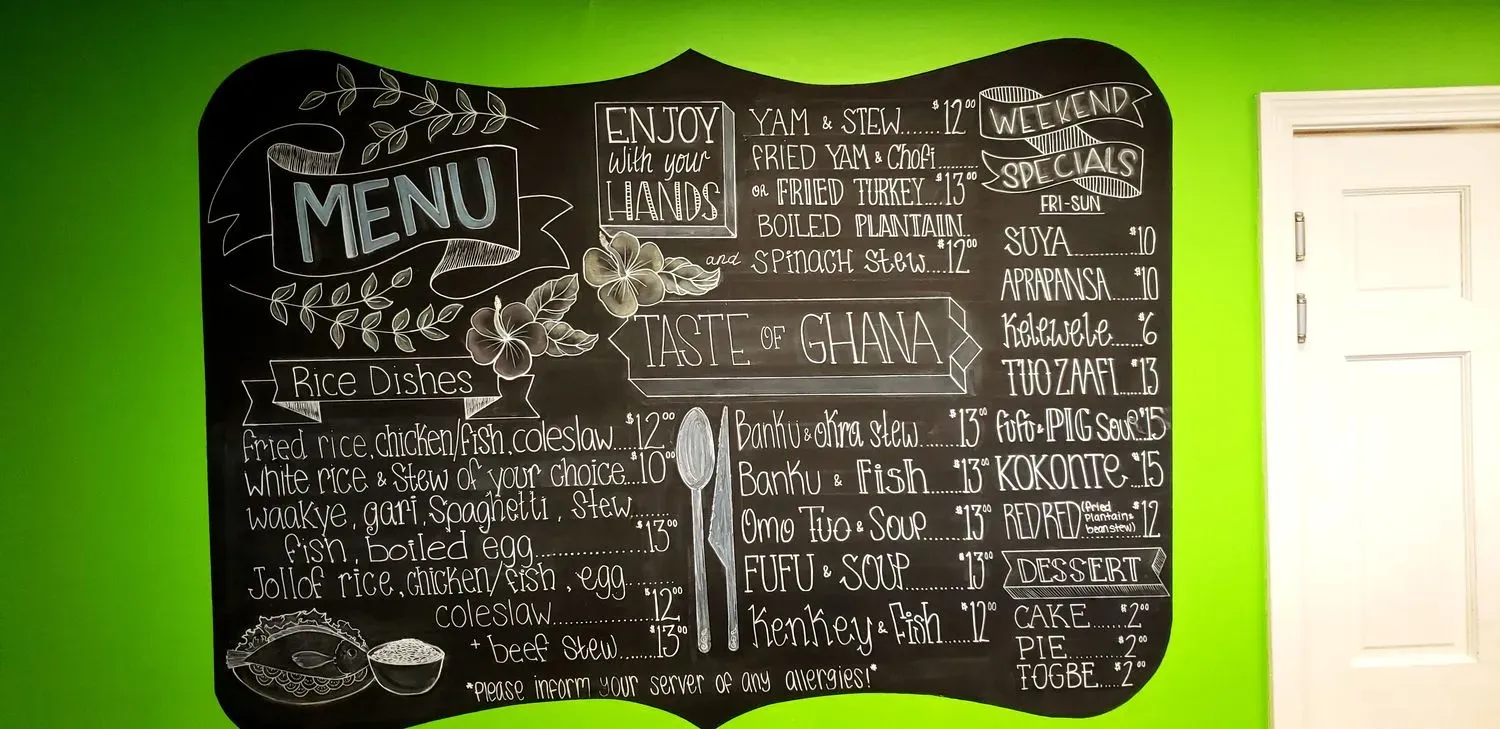 MENU
Rice Dishes
fried rice, chicken/fish, coleslaw...$12.00
White rice & Stew of your choice...$10.00
waakye, gari, Spaghetti, Stew.......
fish, boiled egg..............$13.00
Jollof rice, chicken/fish, egg........
coleslaw.........$12.00
+ beef stew.......$13.00
ENJOY
with your
HANDS
YAM & STEW.......$12.00
FRIED YAM & Chofi.........
OR FRIED TURKEY...$13.00
BOILED PLANTAIN..
and SPINACH Stew....$12.00
TASTE OF GHANA
Banku & Okra stew.......$13.00
Banku & Fish.......$13.00
Omo Tuo & Soup.....$13.00
FUFU & SOUP.......$13.00
Kenkey & Fish.....$12.00
WEEKEND
SPECIALS
FRI-SUN
SUYA........$10
APRAPANSA.....$10
Kelewele.....$6
TUO ZAAFI...$13
fufu & PIG Soup..$15
KOKONTE...$15
RED RED (fried Plantain & bean stew) $12
DESSERT
CAKE.....$2.00
PIE.......$2.00
TOGBE.....$2.00
*Please inform your server of any allergies!*